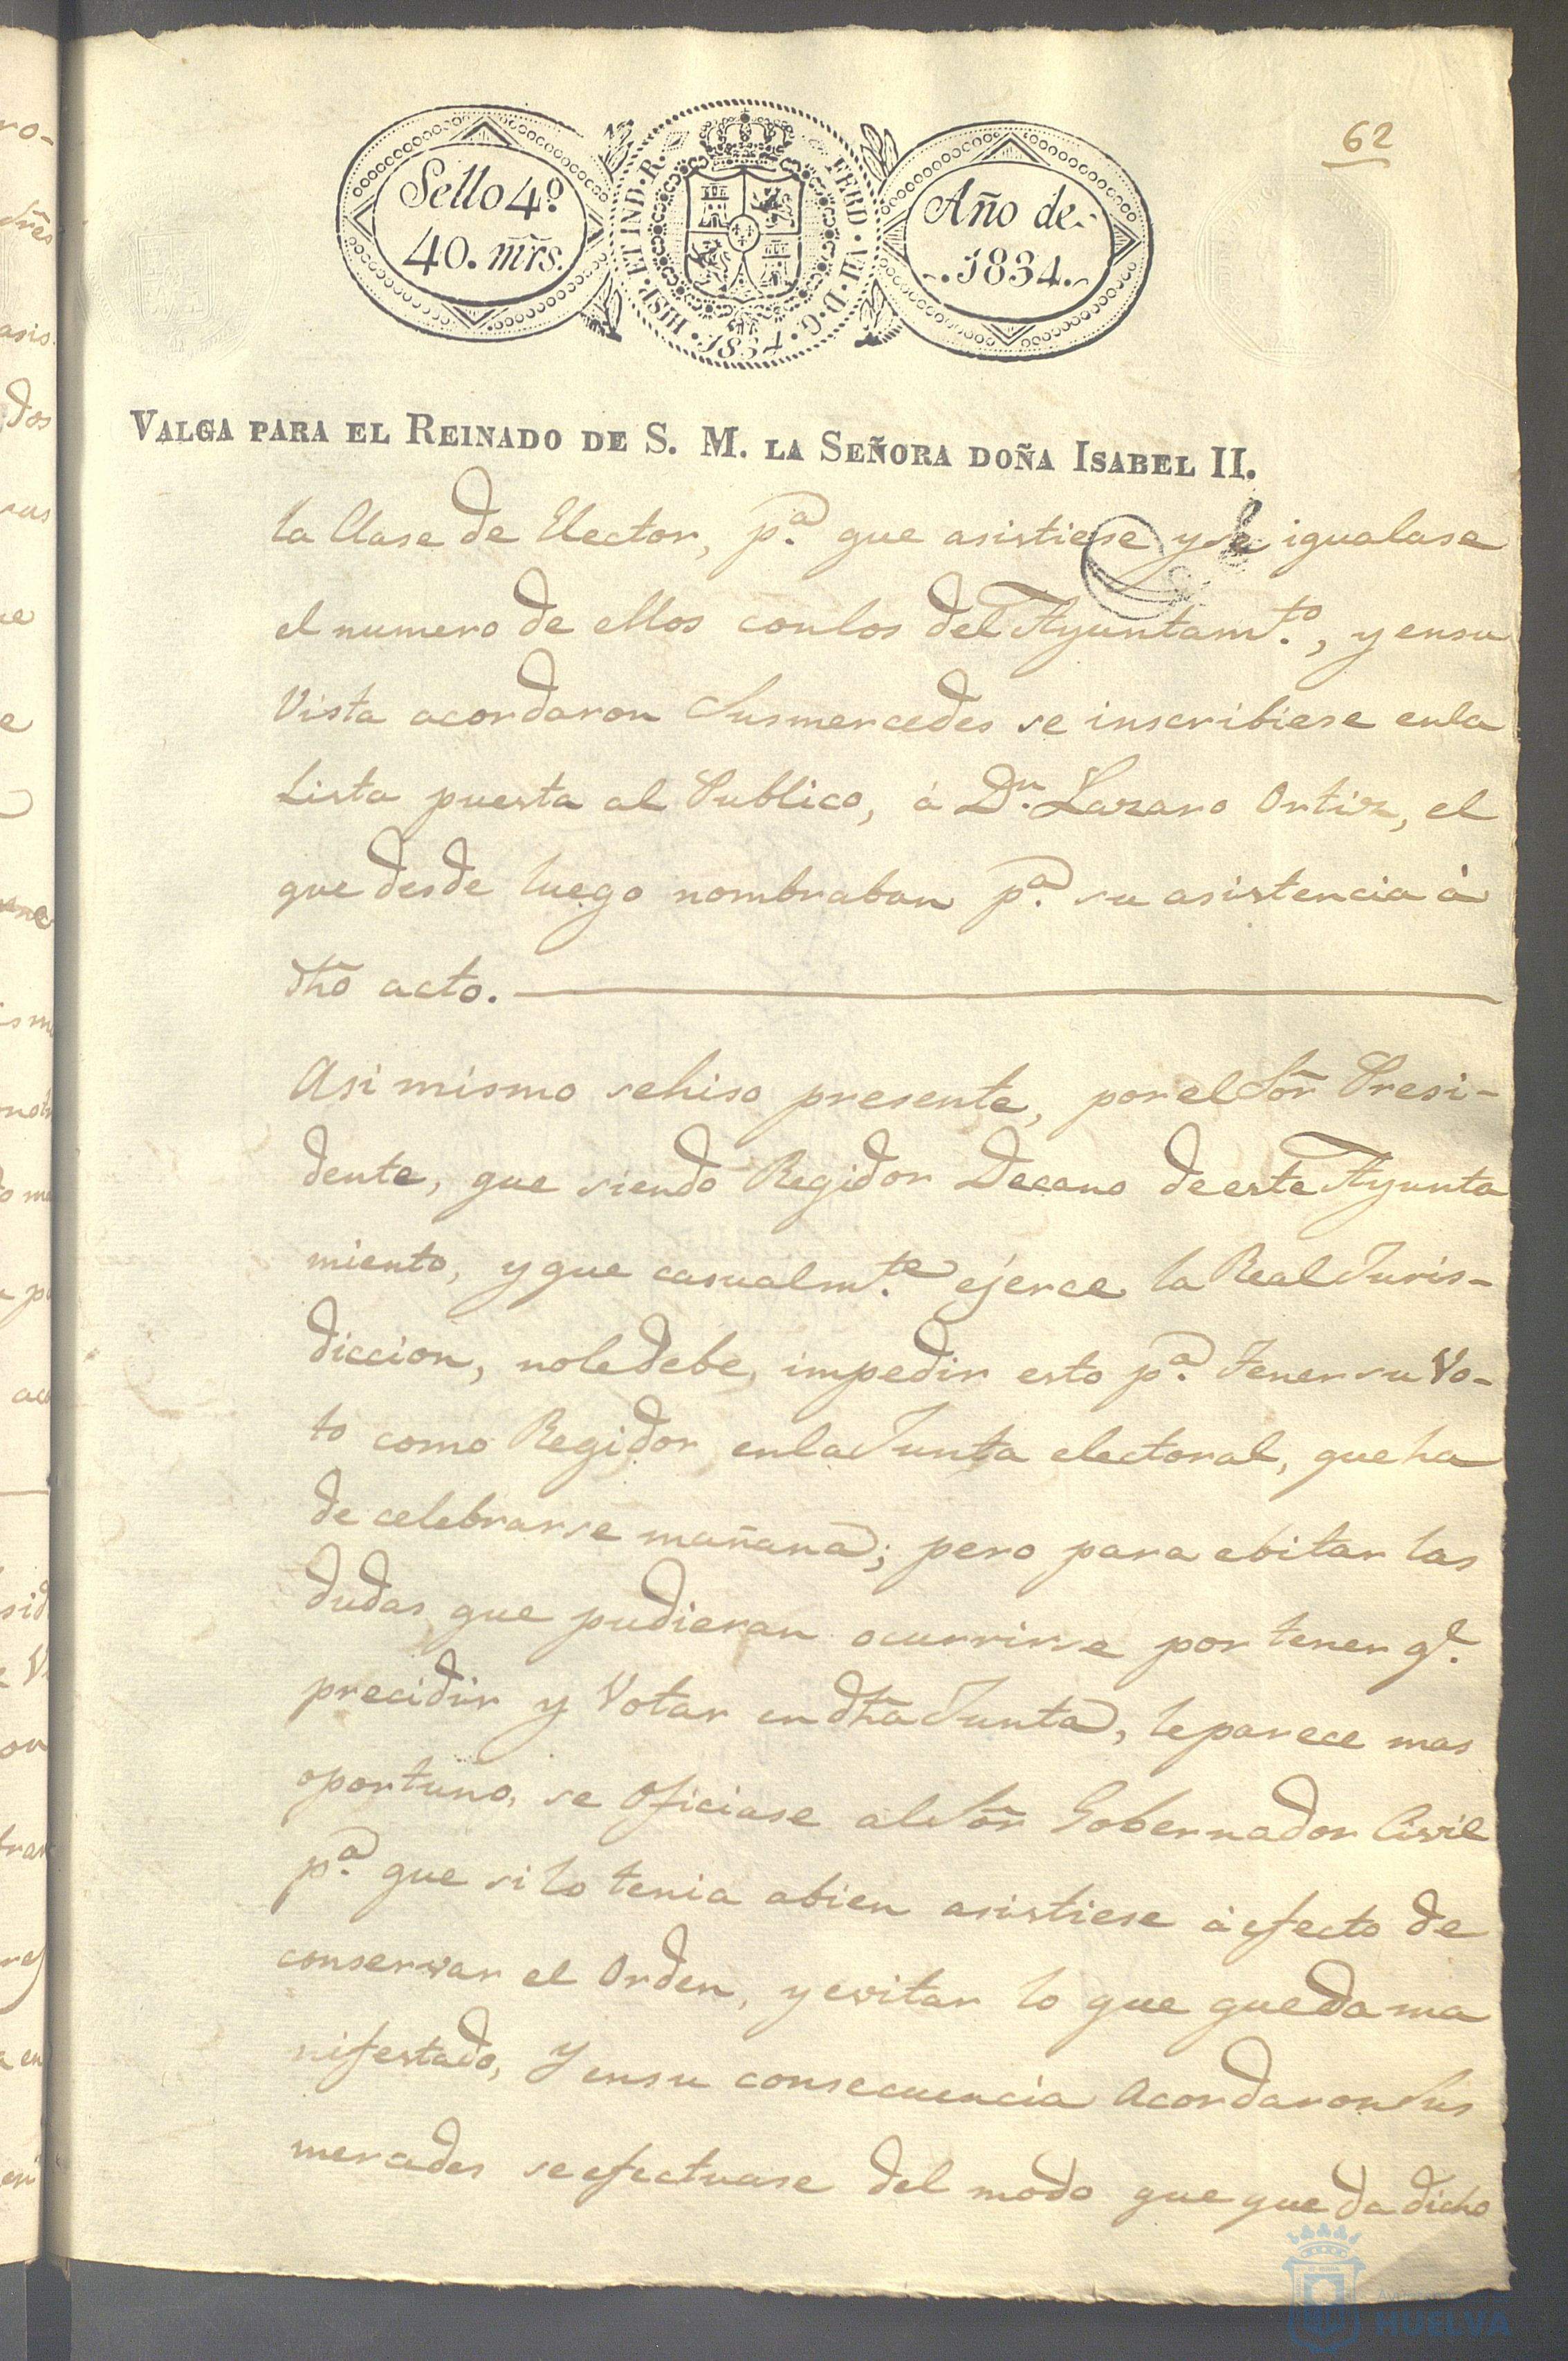 62
Sello 4.º
40. mrs.
HISP. ET IND. R.
FERD. VII. D. G.
1834
Año de
1834.
VALGA PARA EL REINADO DE S. M. LA SEÑORA DOÑA ISABEL II.
la Clase de Elector, p.ª que asistiese y se igualase
el numero de ellos conlos del Ayuntam.to, y ensu
Vista acordaron Susmercedes se inscribiese enla
Lista puesta al Publico, á D.n Lazaro Ortiz, el
que desde luego nombraban p.ª su asistencia á
dho acto.
Asi mismo sehiso presente, porel Sor Presi-
dente, que siendo Regidor Decano deeste Ayunta
miento, y que casualm.te ejerce la Real Juris-
diccion, noledebe, impedir esto p.ª tener su Vo-
to como Regidor enla Junta electoral, que ha
de celebrarse mañana; pero para ebitar las
dudas que pudieran ocurrirse por tener q.e
precidir y Votar en dha Junta, le parece mas
oportuno, se oficiase al Sor Gobernador Civil
p.ª que si lo tenia abien asistiese á efecto de
conservar el Orden, y evitar lo que queda ma
nifestado, y ensu consecuencia Acordaron Sus
mercedes se efectuase del modo que queda dicho
HUELVA